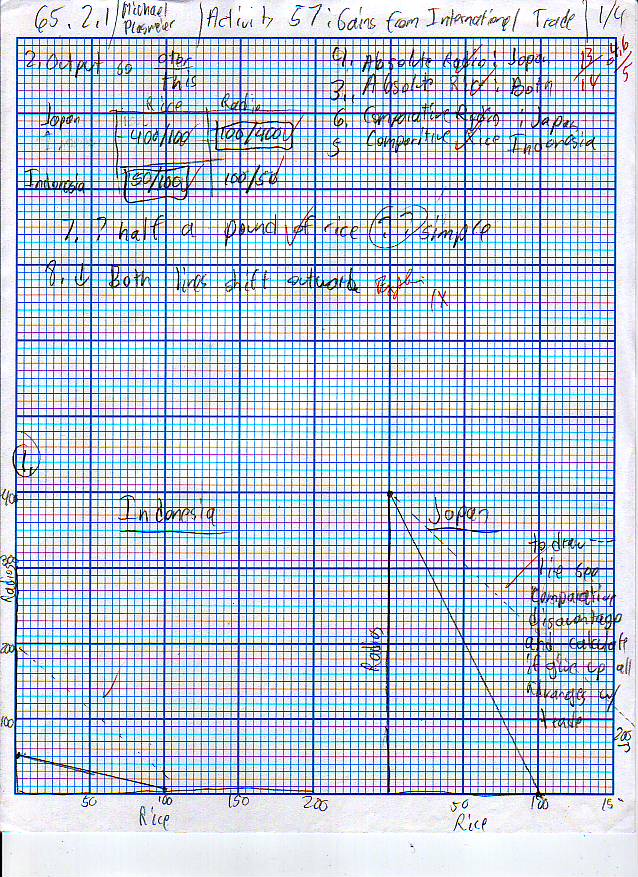 65.2.1 Michael Plasmeier Activity 57: Gains from International Trade 1/4
2. Output so other this
Rice Radio
Japan 400/100 100/400
Indonesia 50/100 100/50
4. Absolute Radio: Japan
3. Absolute Rice: Both
6. Comparative Radio: Japan
5 Comparitive Rice Indonesia
13
14
4.6
5
7. ? half a pound of rice (? ?) simple
8. ↓ Both lines shift outwards
1X
1.
Indonesia
Japan
to draw
line see
Comparative
disavantage
and calculate
if give up all
w/
trade
Radios
400
300
200
100
50 100 150 200
Rice
Radios
50 100 15
Rice
200